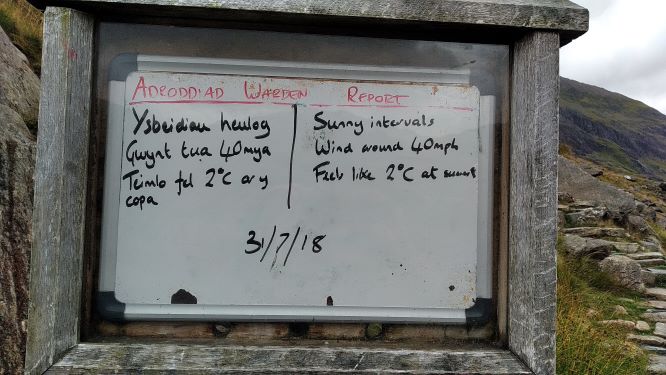 ADRODDIAD WARDEN REPORT
Ysbeidiau heulog
Gwynt tua 40mya
Teimlo fel 2°C ar y
copa
Sunny intervals
Wind around 40mph
Feels like 2°C at summit
31/7/18